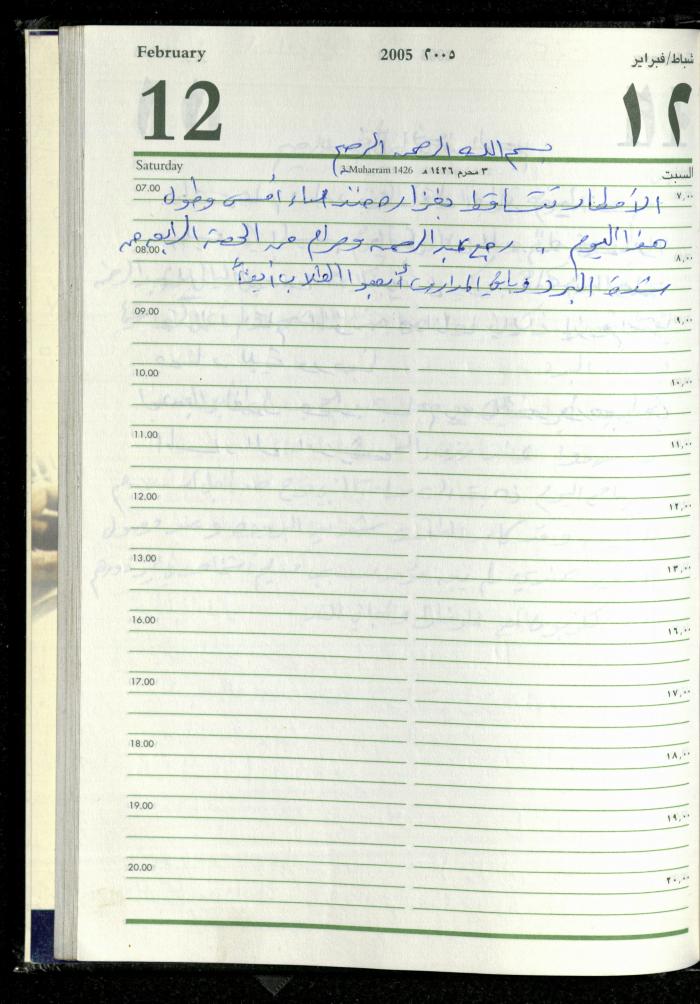 February 2005 ٢٠٠٥ شباط/فبراير
12 ١٢
بسم الله الرحمن الرحيم
Saturday 3 Muharram 1426 ٣ محرم ١٤٢٦ هـ السبت
07.00 الأمطار تتساقط بغزارة منذ مساء أمس وطول ٧,٠٠
هذا اليوم .. رجع عبد الرحمن ومرام من الحصة الرابعة من
08.00 ٨,٠٠
شدة البرد وباقي المدارس أرجعوا الطلاب أيضاً
09.00 ٩,٠٠
10.00 ١٠,٠٠
11.00 ١١,٠٠
12.00 ١٢,٠٠
13.00 ١٣,٠٠
16.00 ١٦,٠٠
17.00 ١٧,٠٠
18.00 ١٨,٠٠
19.00 ١٩,٠٠
20.00 ٢٠,٠٠